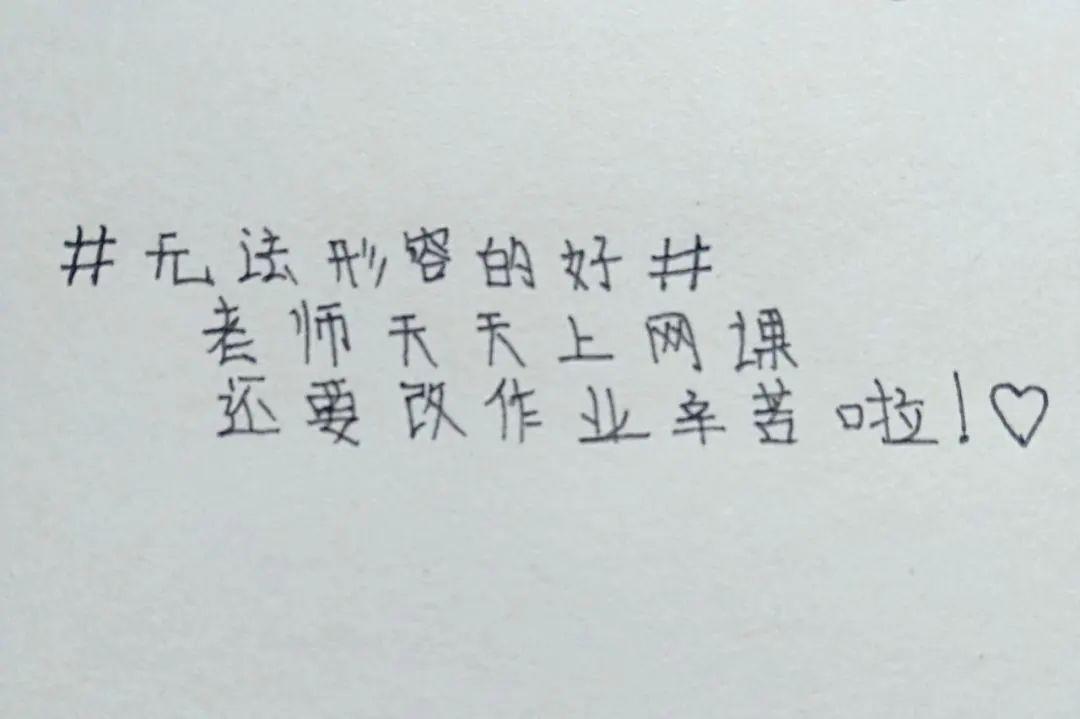 #无法形容的好#
老师天天上网课
还要改作业辛苦啦!♡